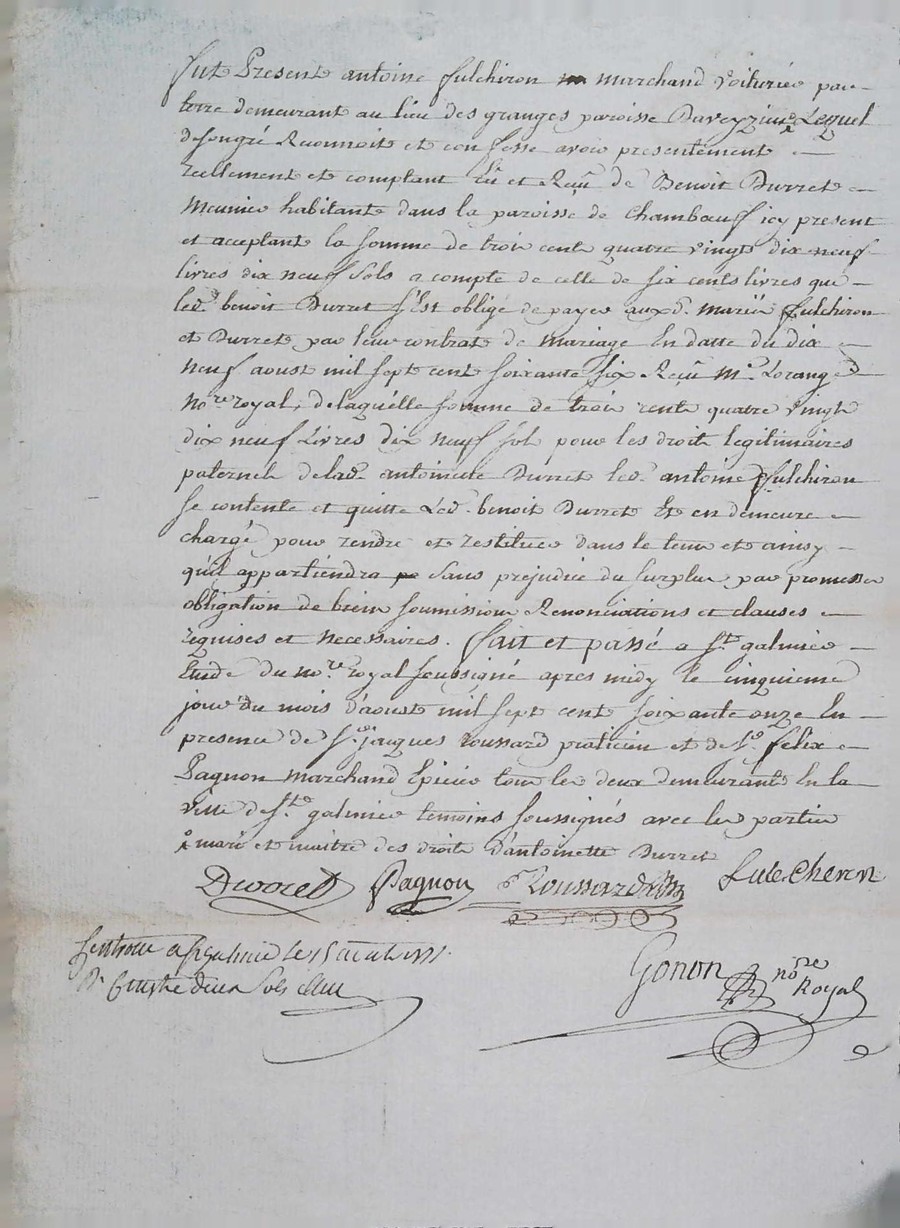 fut Present antoine fulchiron marchand voiturier par
terre demeurant au lieu des granges paroisse Daveyzieux Lequel
de son gré Reconnoit et confesse avoir presentement
reellement et comptant Eû et Reçû de Benoit Durret
Meunier habitant dans la paroisse de Chambœuf icy present
et aceptant la somme de trois cent quatre vingt dix neuf
livres dix neuf sols a compte de celle de six cents livres que
led. benoit Durret s'Est obligé de payer auxd. mariés fulchiron
et Durret par leur contrat de mariage En datte du dix
neuf aoust mil sept cent soixante six Reçû Me. Lorange
Nore. royal, de laquelle somme de trois cents quatre vingt
dix neuf Livres dix neuf sols pour les droits legitimaires
paternels de lad. antoinette Durret led. antoine fulchiron
se contente et quitte Led. benoit Durret Et en demeure
chargé pour rendre et restituer dans le tems et ainsy
qu'il appartiendra sans prejudice du surplus par promesse
obligation de biens soumissions Renonciations et clauses
requises et necessaires. fait et passé a St. galmier
Etude du nore. royal soussigné apres midy le cinquieme
jour du mois d'aoust mil sept cent soixante onze En
presence de Sr. jacques roussard praticien et de Sr. felix
Pagnon marchand Epicier tous les deux demeurants En la
ville de St. galmier temoins soussignés avec les parties
mari et maitre des droits d'antoinette Durret
Durret Pagnon Roussard fulcheron
a St galmier le 15
sols
Gonon nore Royal